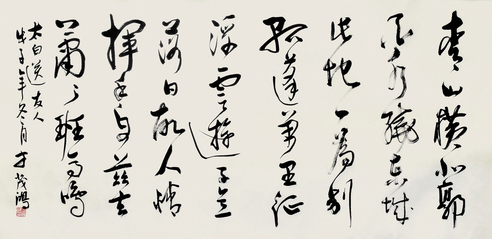 青山横北郭
白水绕东城
此地一为别
孤蓬万里征
浮云游子意
落日故人情
挥手自兹去
萧々班马鸣
太白送友人